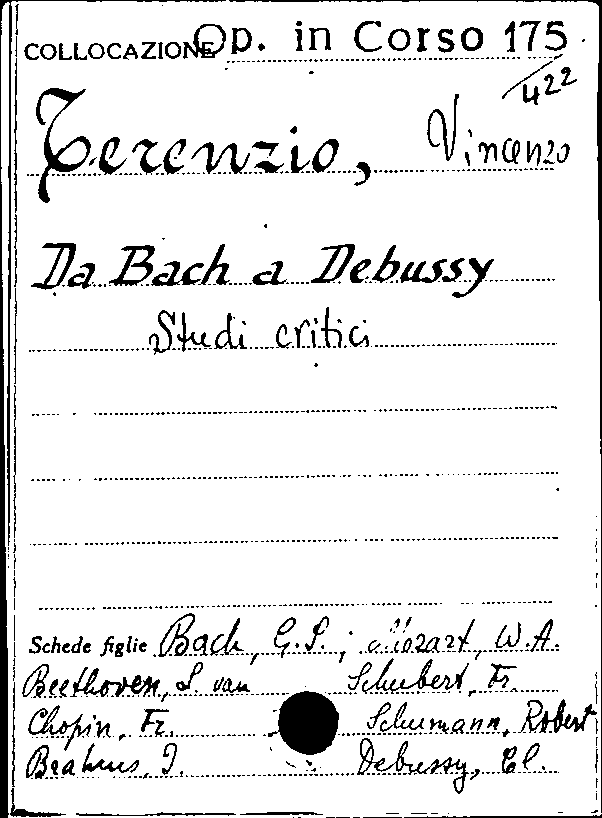 COLLOCAZIONE Op. in Corso 175
/422
Terenzio, Vincenzo
Da Bach a Debussy
Studi critici
Schede figlie Bach, G.S.; Mozart, W.A.
Beethoven, L. van Schubert, Fr.
Chopin, Fr. Schumann, Robert
Brahms, J. Debussy, Cl.